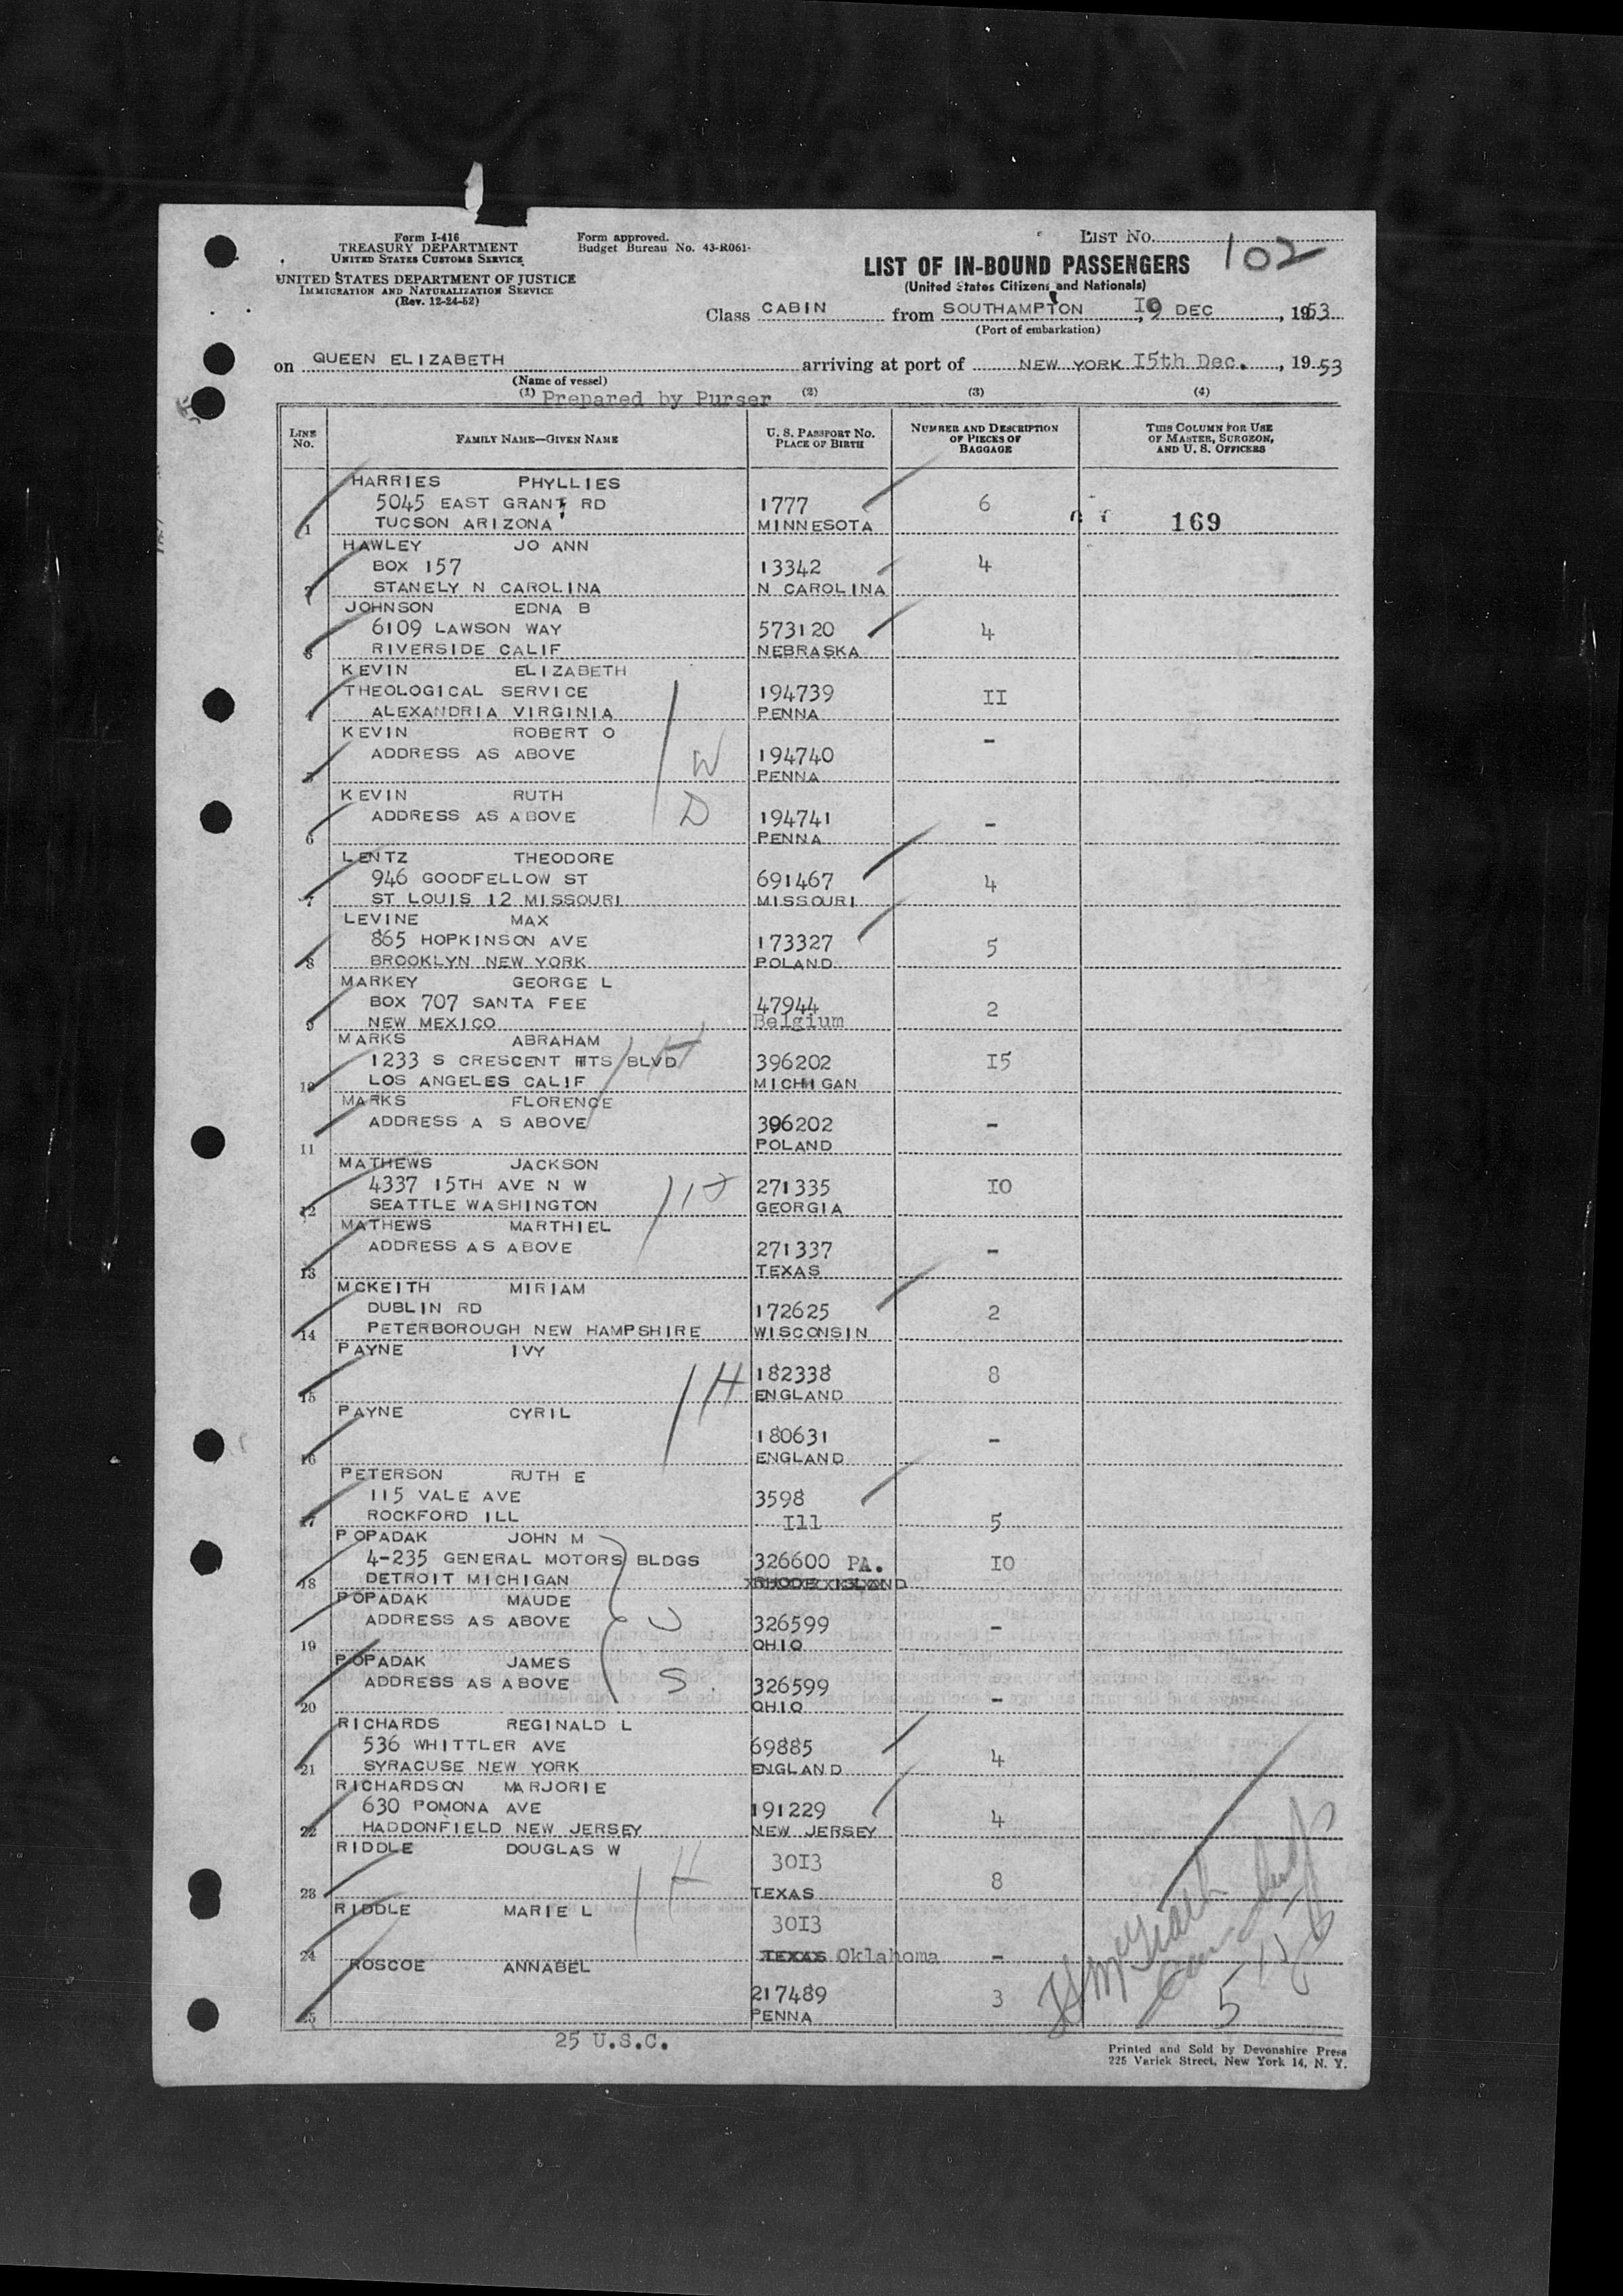 Form I-416
TREASURY DEPARTMENT
UNITED STATES CUSTOMS SERVICE
UNITED STATES DEPARTMENT OF JUSTICE
IMMIGRATION AND NATURALIZATION SERVICE
(Rev. 12-24-52)
Form approved.
Budget Bureau No. 43-R061-
LIST No. 102
LIST OF IN-BOUND PASSENGERS
(United States Citizens and Nationals)
Class CABIN from SOUTHAMPTON , DEC , 1953
(Port of embarkation)
on QUEEN ELIZABETH arriving at port of NEW YORK I5th Dec. , 1953
(Name of vessel)
(1) Prepared by Purser (2) (3) (4)
LINE No.
FAMILY NAME—GIVEN NAME
U. S. PASSPORT No.
PLACE OF BIRTH
NUMBER AND DESCRIPTION
OF PIECES OF
BAGGAGE
THIS COLUMN FOR USE
OF MASTER, SURGEON,
AND U. S. OFFICERS
HARRIES PHYLLIES
5045 EAST GRANT RD 1777 6
1 TUCSON ARIZONA MINNESOTA 169
HAWLEY JO ANN
BOX 157 13342 4
2 STANELY N CAROLINA N CAROLINA
JOHNSON EDNA B
6109 LAWSON WAY 573120 4
3 RIVERSIDE CALIF NEBRASKA
KEVIN ELIZABETH
THEOLOGICAL SERVICE 194739 II
4 ALEXANDRIA VIRGINIA PENNA
KEVIN ROBERT O -
ADDRESS AS ABOVE W 194740
5 PENNA
KEVIN RUTH
ADDRESS AS ABOVE D 194741 -
6 PENNA
LENTZ THEODORE
946 GOODFELLOW ST 691467 4
7 ST LOUIS 12 MISSOURI MISSOURI
LEVINE MAX
865 HOPKINSON AVE 173327 5
8 BROOKLYN NEW YORK POLAND
MARKEY GEORGE L
BOX 707 SANTA FEE 47944 2
9 NEW MEXICO Belgium
MARKS ABRAHAM H
1233 S CRESCENT HTS BLVD 396202 I5
10 LOS ANGELES CALIF MICHIGAN
MARKS FLORENCE
ADDRESS A S ABOVE 396202 -
11 POLAND
MATHEWS JACKSON
4337 15TH AVE N W 271335 IO
12 SEATTLE WASHINGTON GEORGIA
MATHEWS MARTHIEL
ADDRESS AS ABOVE 271337 -
13 TEXAS
MCKEITH MIRIAM
DUBLIN RD 172625 2
14 PETERBOROUGH NEW HAMPSHIRE WISCONSIN
PAYNE IVY
H 182338 8
15 ENGLAND
PAYNE CYRIL
180631 -
16 ENGLAND
PETERSON RUTH E
115 VALE AVE 3598
17 ROCKFORD ILL Ill 5
POPADAK JOHN M
4-235 GENERAL MOTORS BLDGS 326600 PA. IO
18 DETROIT MICHIGAN RHODE ISLAND
POPADAK MAUDE
ADDRESS AS ABOVE U 326599 -
19 OHIO
POPADAK JAMES
ADDRESS AS ABOVE S. 326599 -
20 OHIO
RICHARDS REGINALD L
536 WHITTLER AVE 69885 4
21 SYRACUSE NEW YORK ENGLAND
RICHARDSON MARJORIE
630 POMONA AVE 191229 4
22 HADDONFIELD NEW JERSEY NEW JERSEY
RIDDLE DOUGLAS W
H 30I3 8
23 TEXAS
RIDDLE MARIE L
30I3
24 TEXAS Oklahoma -
ROSCOE ANNABEL
217489 3 5
25 PENNA
25 U.S.C.
Printed and Sold by Devonshire Press
225 Varick Street, New York 14, N. Y.